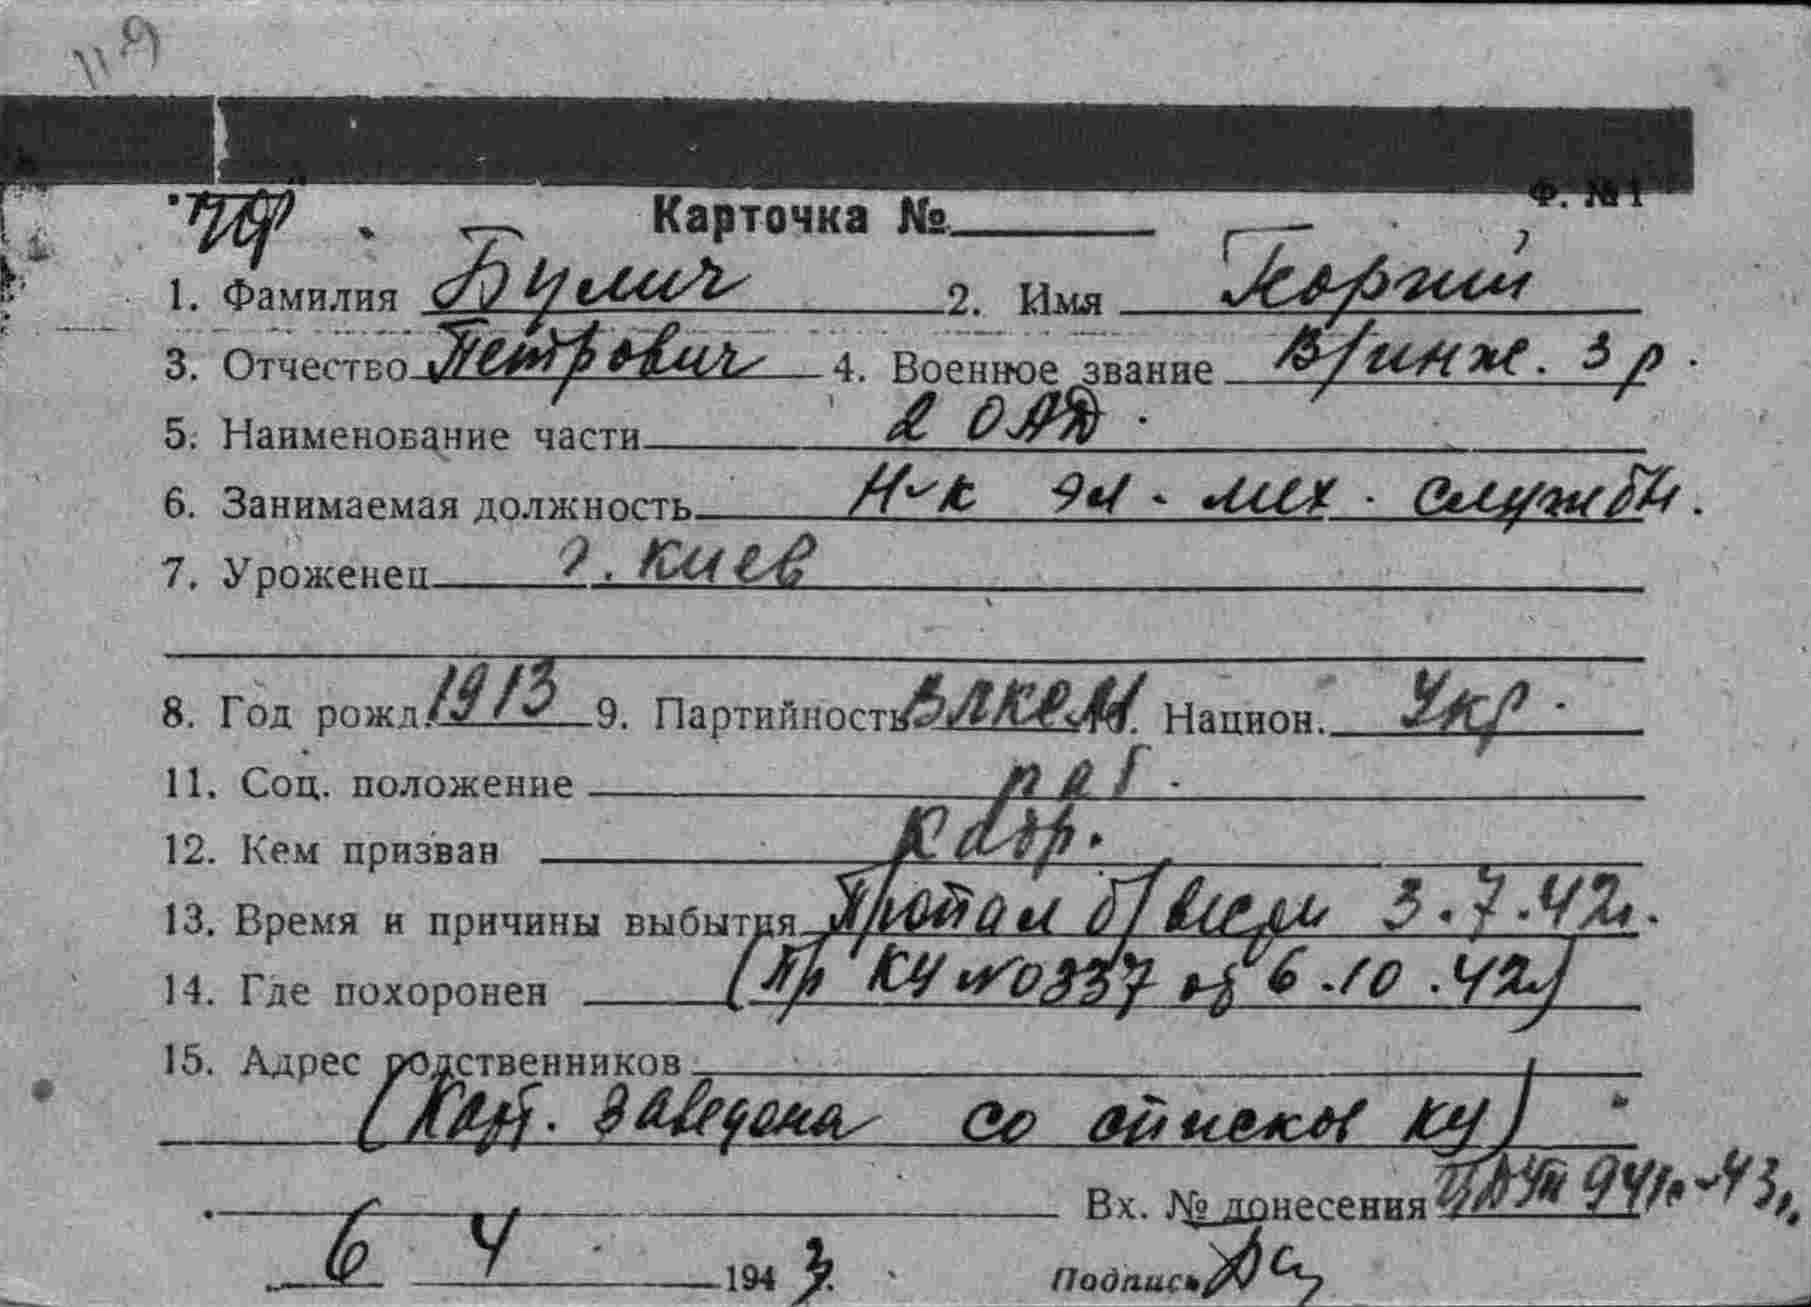 119
Ф. № 1
Карточка №
1. Фамилия Булич 2. Имя Георгий
3. Отчество Петрович 4. Военное звание В/инж. 3 р.
5. Наименование части 2 ОАД.
6. Занимаемая должность Н-к эл. мех. службы.
7. Уроженец г. Киев
8. Год рожд. 1913 9. Партийность ВЛКСМ Национ. Укр.
11. Соц. положение раб.
12. Кем призван Кадр.
13. Время и причины выбытия Пропал б/вести 3.7.42г.
14. Где похоронен (Пр КУ №0337 от 6.10.42г)
15. Адрес родственников
(Карт. заведена со списков КУ)
Вх. № донесения 941с-43г.
6 4 1943
Подпись